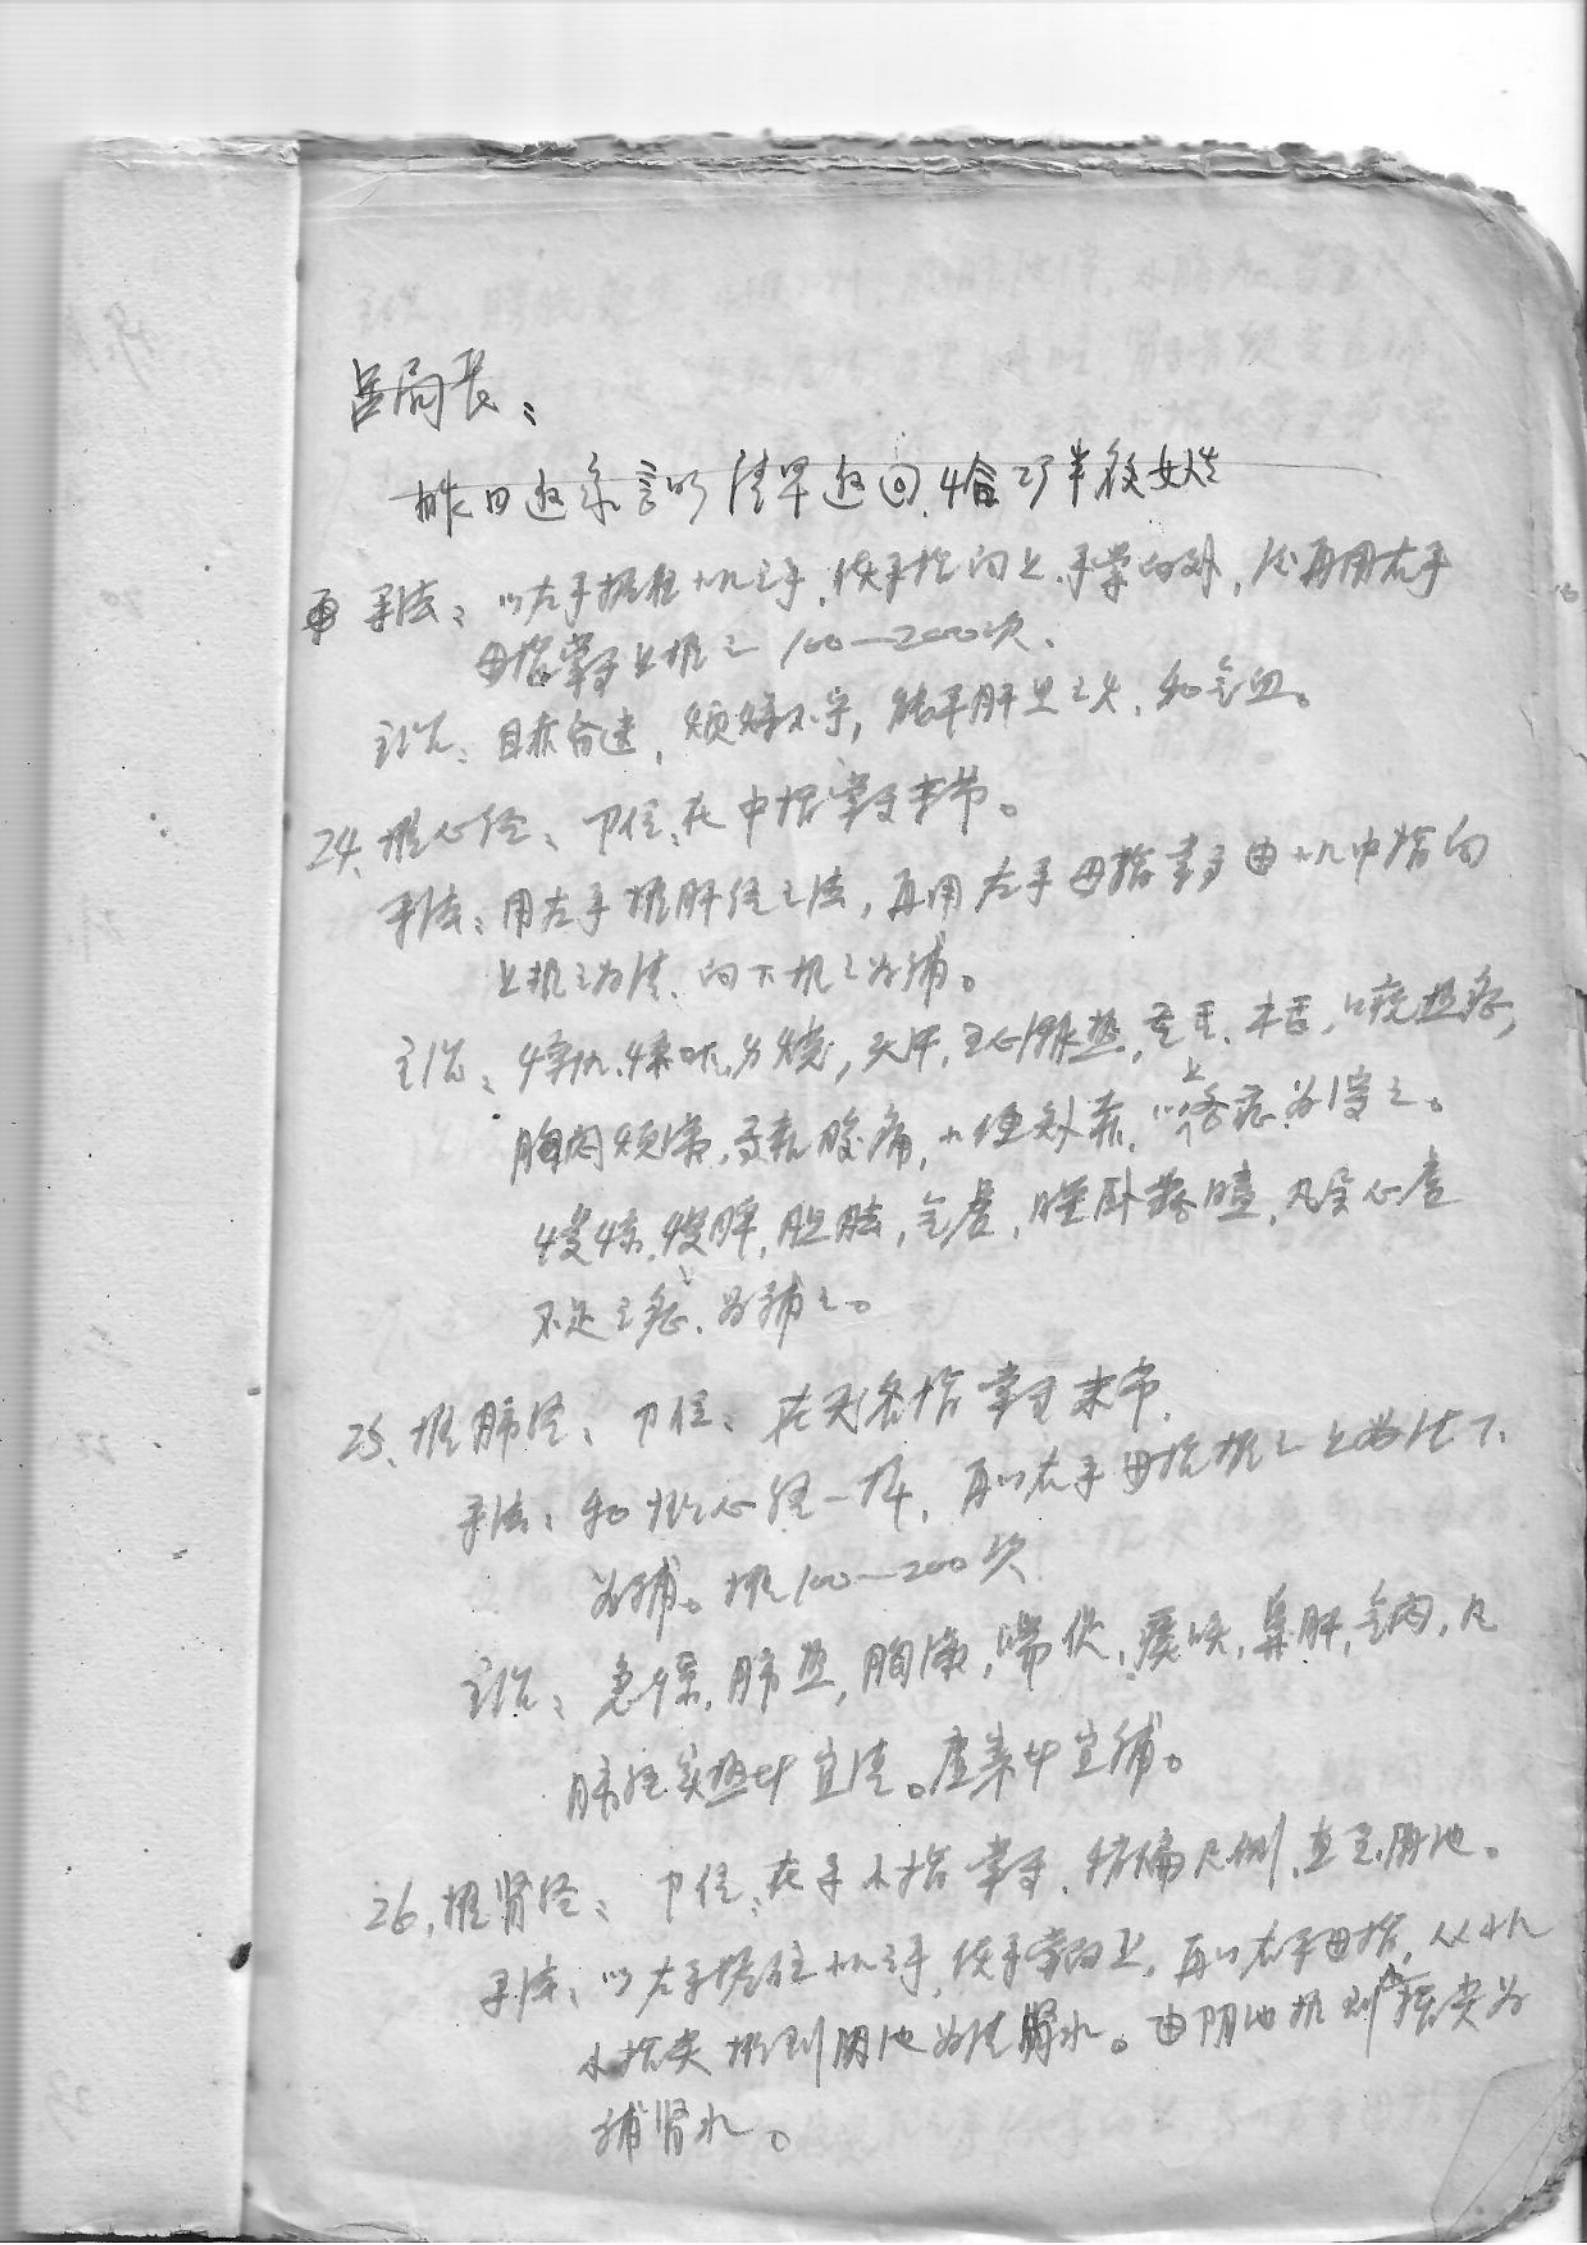 吕局长：
昨日返京言明清早返回，恰巧半夜女性
手法：以左手握住小儿之手，使手指向上，手掌向外，后再用右手
母指掌面上推之100—200次。
主治：目赤昏迷，烦燥不宁，能平肝胆之火，和气血。
24、推心经：部位：在中指掌面末节。
手法：用左手推肝经之法，再用右手母指掌面由小儿中指向
上推之为清、向下推之为补。
主治：惊风、惊吓、发烧，天吊，主心脉热，重舌、木舌，口疮热疼，
胸内烦满，腹痛，小便短赤，以上各症为清之。
慢惊、慢脾，胆怯，气虚，睡卧露睛，凡属心虚
不足之症、为补之。
25、推肺经：部位：在无名指掌面末节，
手法：和推心经一样，再以右手母指推之上为清下、
为补。推100—200次
主治：急惊，肺热，胸满，喘促，痰咳，鼻肝，气闷，凡
肺经实热也宜清。虚寒也宜补。
26、推肾经：部位：在手小指掌面，稍偏尺侧，直至阴池。
手法：以左手握住小儿之手，使手掌向上，再以右手母指，从小儿
小指尖推到阴池为清肾水。由阴池推到小指尖为
补肾水。